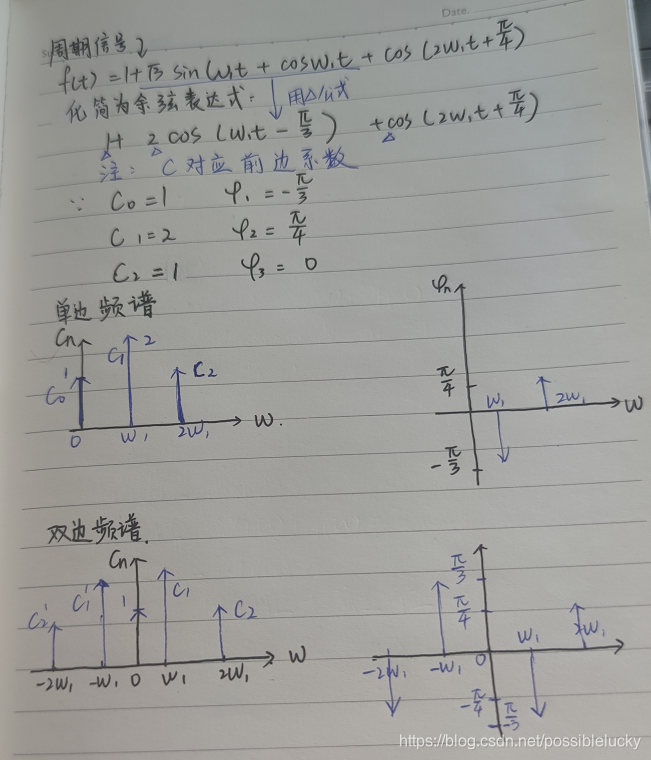 Date.
周期信号
f(t) = 1+√3 sinω₁t + cosω₁t + cos(2ω₁t+π/4)
化简为余弦表达式: 用△公式
1+ 2cos(ω₁t-π/3) +cos(2ω₁t+π/4)
注: C对应前边系数
∵ C₀=1 φ₁=-π/3
C₁=2 φ₂=π/4
C₂=1 φ₃=0
单边频谱
Cn C₀ 1 C₁ 2 C₂
0 ω₁ 2ω₁ ω.
φn
π/4 ω₁ 2ω₁ ω
-π/3
双边频谱.
Cn C₂' C₁' 1 C₁ C₂
-2ω₁ -ω₁ 0 ω₁ 2ω₁ ω
π/3
π/4 ω₁ 2ω₁
-2ω₁ -ω₁ 0
-π/4 -π/3
https://blog.csdn.net/possiblelucky